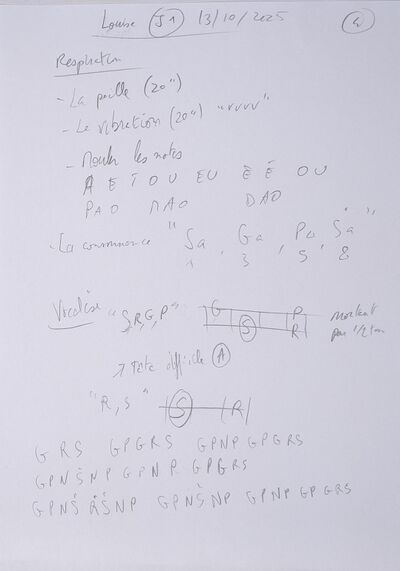 Louise J1 13/10/2025
Respiration
- La paille (20")
- Le vibration (20") "vvvv"
- les notes
A E I O U EU È É OU
PAO MAO DAO
"Sa, Ga, Pa, Sa"
1 3 5 8
Vocalise "S,R,G,P" G P montant
S R par 1/2 ton
Tête difficile A
"R, S" S R
G R S G P G R S G P N P G P G R S
G P N Ṡ N P G P N P G P G R S
G P N Ṡ Ṙ Ṡ N P G P N Ṡ N P G P N P G P G R S